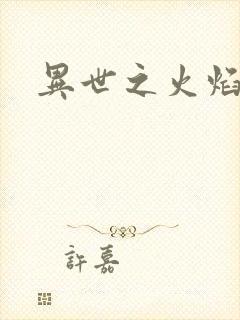 異世之火焰
許嘉